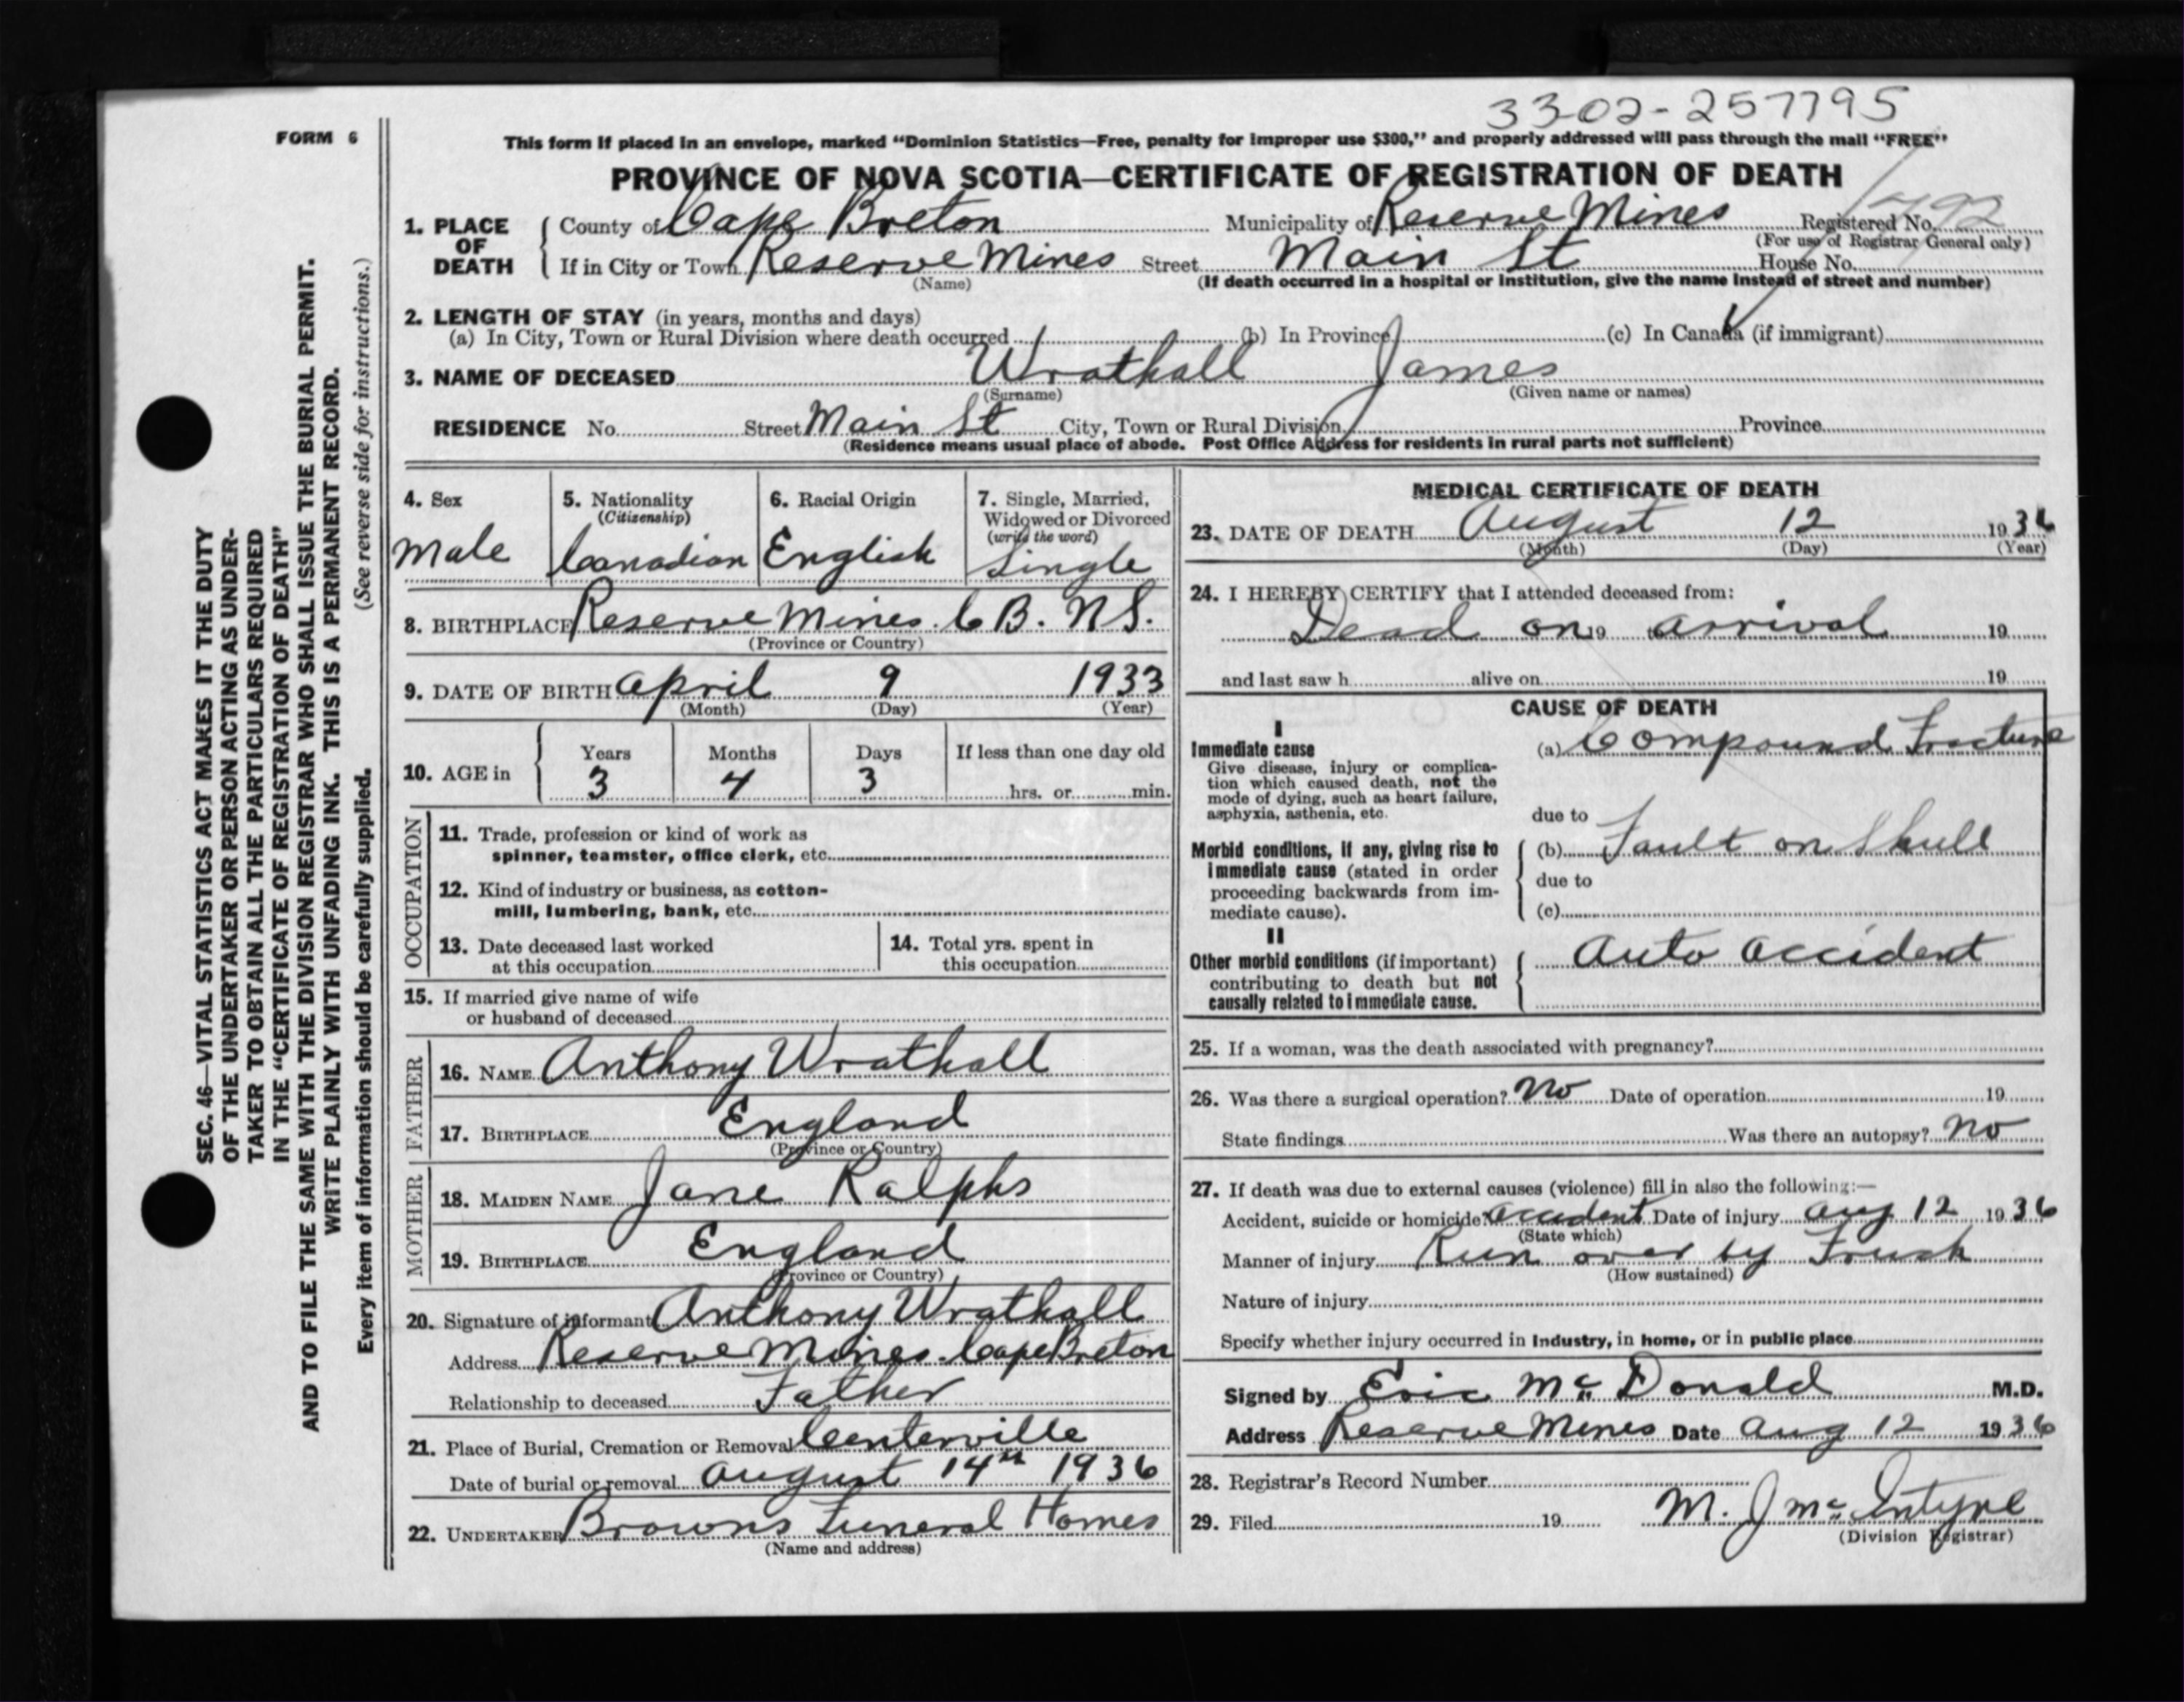 3302-257795
FORM 6
This form if placed in an envelope, marked “Dominion Statistics—Free, penalty for improper use $300,” and properly addressed will pass through the mail “FREE”
PROVINCE OF NOVA SCOTIA—CERTIFICATE OF REGISTRATION OF DEATH
1. PLACE OF DEATH
County of Cape Breton Municipality of Reserve Mines Registered No.
(For use of Registrar General only)
If in City or Town Reserve Mines Street Main St House No.
(Name) (If death occurred in a hospital or institution, give the name instead of street and number)
2. LENGTH OF STAY (in years, months and days)
(a) In City, Town or Rural Division where death occurred (b) In Province (c) In Canada (if immigrant)
3. NAME OF DECEASED Wrathall James
(Surname) (Given name or names)
RESIDENCE No. Street Main St City, Town or Rural Division Province
(Residence means usual place of abode. Post Office Address for residents in rural parts not sufficient)
4. Sex
Male
5. Nationality
(Citizenship)
Canadian
6. Racial Origin
English
7. Single, Married,
Widowed or Divorced
(write the word)
Single
8. BIRTHPLACE Reserve Mines. C B. N S.
(Province or Country)
9. DATE OF BIRTH April 9 1933
(Month) (Day) (Year)
10. AGE in
Years Months Days If less than one day old
3 4 3 hrs. or min.
OCCUPATION
11. Trade, profession or kind of work as
spinner, teamster, office clerk, etc.
12. Kind of industry or business, as cotton-
mill, lumbering, bank, etc.
13. Date deceased last worked
at this occupation
14. Total yrs. spent in
this occupation
15. If married give name of wife
or husband of deceased
FATHER
16. NAME Anthony Wrathall
17. BIRTHPLACE England
(Province or Country)
MOTHER
18. MAIDEN NAME Jane Ralphs
19. BIRTHPLACE England
(Province or Country)
20. Signature of informant Anthony Wrathall
Address Reserve Mines. Cape Breton
Relationship to deceased Father
21. Place of Burial, Cremation or Removal Centerville
Date of burial or removal August 14th 1936
22. UNDERTAKER Browns Funeral Homes
(Name and address)
MEDICAL CERTIFICATE OF DEATH
23. DATE OF DEATH August 12 1936
(Month) (Day) (Year)
24. I HEREBY CERTIFY that I attended deceased from:
Dead on 19 arrival 19
and last saw h alive on 19
CAUSE OF DEATH
I
Immediate cause
Give disease, injury or complica-
tion which caused death, not the
mode of dying, such as heart failure,
asphyxia, asthenia, etc.
(a) Compound Fracture
due to
Morbid conditions, if any, giving rise to
immediate cause (stated in order
proceeding backwards from im-
mediate cause).
(b) Fault on Skull
due to
(c)
II
Other morbid conditions (if important)
contributing to death but not
causally related to immediate cause.
Auto accident
25. If a woman, was the death associated with pregnancy?
26. Was there a surgical operation? No Date of operation 19
State findings Was there an autopsy? No
27. If death was due to external causes (violence) fill in also the following:—
Accident, suicide or homicide? accident Date of injury Aug 12 1936
(State which)
Manner of injury Run over by Truck
(How sustained)
Nature of injury
Specify whether injury occurred in industry, in home, or in public place
Signed by Eric McDonald M.D.
Address Reserve Mines Date Aug 12 1936
28. Registrar's Record Number
29. Filed 19 M. J McIntyre
(Division Registrar)
SEC. 46—VITAL STATISTICS ACT MAKES IT THE DUTY
OF THE UNDERTAKER OR PERSON ACTING AS UNDER-
TAKER TO OBTAIN ALL THE PARTICULARS REQUIRED
IN THE “CERTIFICATE OF REGISTRATION OF DEATH”
AND TO FILE THE SAME WITH THE DIVISION REGISTRAR WHO SHALL ISSUE THE BURIAL PERMIT.
WRITE PLAINLY WITH UNFADING INK. THIS IS A PERMANENT RECORD.
Every item of information should be carefully supplied. (See reverse side for instructions.)